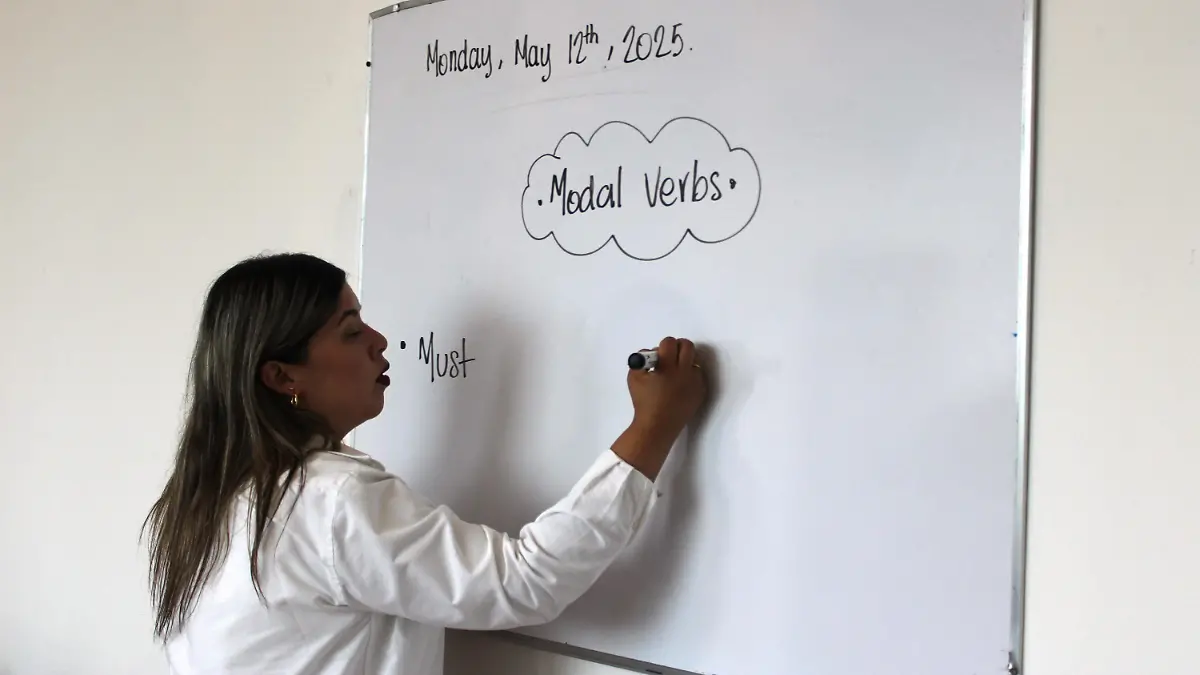 Monday, May 12th, 2025.
• Modal Verbs •
• Must